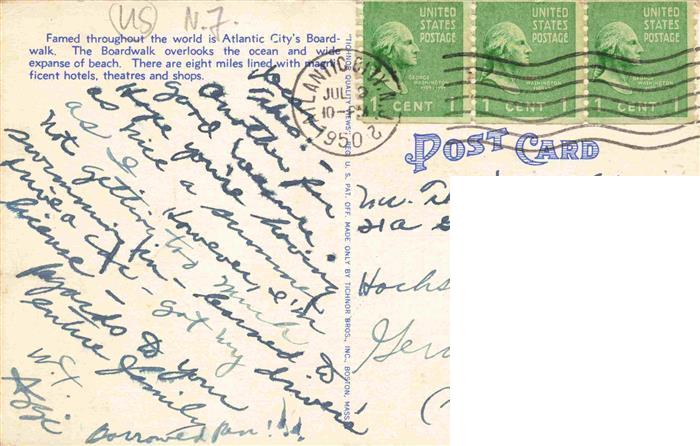 US N.J.
Famed throughout the world is Atlantic City's Board-
walk. The Boardwalk overlooks the ocean and wide
expanse of beach. There are eight miles lined with magnif-
icent hotels, theatres and shops.
UNITED STATES POSTAGE
GEORGE WASHINGTON
1 CENT 1
UNITED STATES POSTAGE
GEORGE WASHINGTON
1 CENT 1
UNITED STATES POSTAGE
GEORGE WASHINGTON
1 CENT 1
ATLANTIC CITY
JUL
1950
POST CARD
Another for
good measure.
Hope you're having
as nice a summer
as I. However, I'm
not getting too much
swimming in - learned to
drive a car - got my driver's
license -
Regards to your
entire family
borrowed pen!!!
TICHNOR QUALITY VIEWS, REG. U. S. PAT. OFF. MADE ONLY BY TICHNOR BROS., INC., BOSTON, MASS.
21a
Hochs